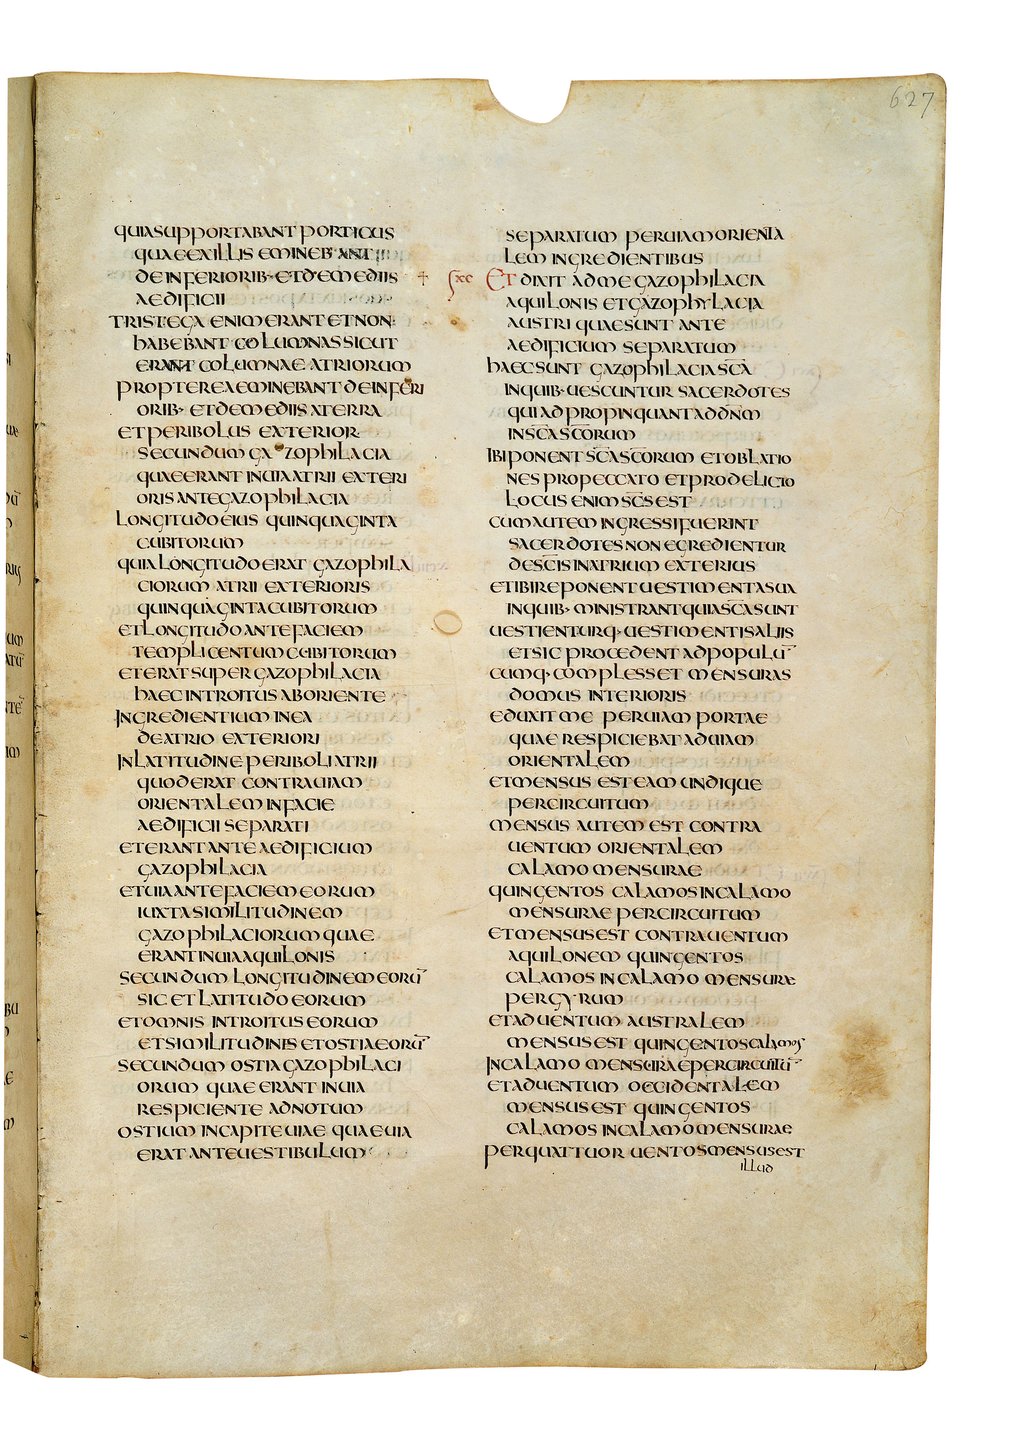 627
QUIA SUPPORTABANT PORTICUS
QUAE EX ILLIS EMINEBANT
DE INFERIORIB· ET DE MEDIIS
AEDIFICII
TRISTEGA ENIM ERANT ET NON
HABEBANT COLUMNAS SICUT
ERANT COLUMNAE ATRIORUM
PROPTEREA EMINEBANT DE INFERI
ORIB· ET DE MEDIIS A TERRA
ET PERIBOLUS EXTERIOR
SECUNDUM GAZOPHILACIA
QUAE ERANT IN UIA ATRII EXTERI
ORIS ANTE GAZOPHILACIA
LONGITUDO EIUS QUINQUAGINTA
CUBITORUM
QUIA LONGITUDO ERAT GAZOPHILA
CIORUM ATRII EXTERIORIS
QUINQUAGINTA CUBITORUM
ET LONGITUDO ANTE FACIEM
TEMPLI CENTUM CUBITORUM
ET ERAT SUPER GAZOPHILACIA
HAEC INTROITUS AB ORIENTE
INGREDIENTIUM IN EA
DE ATRIO EXTERIORI
IN LATITUDINE PERIBOLI ATRII
QUOD ERAT CONTRA UIAM
ORIENTALEM IN FACIE
AEDIFICII SEPARATI
ET ERANT ANTE AEDIFICIUM
GAZOPHILACIA
ET UIA ANTE FACIEM EORUM
IUXTA SIMILITUDINEM
GAZOPHILACIORUM QUAE
ERANT IN UIA AQUILONIS
SECUNDUM LONGITUDINEM EORŪ
SIC ET LATITUDO EORUM
ET OMNIS INTROITUS EORUM
ET SIMILITUDINIS ET OSTIA EORŪ
SECUNDUM OSTIA GAZOPHILACI
ORUM QUAE ERANT IN UIA
RESPICIENTE AD NOTUM
OSTIUM IN CAPITE UIAE QUAE UIA
ERAT ANTE UESTIBULUM
SEPARATUM PER UIAM ORIENTA
LEM INGREDIENTIBUS
ET DIXIT AD ME GAZOPHILACIA
AQUILONIS ET GAZOPHYLACIA
AUSTRI QUAE SUNT ANTE
AEDIFICIUM SEPARATUM
HAEC SUNT GAZOPHILACIA SC̄A
IN QUIB· UESCUNTUR SACERDOTES
QUI ADPROPINQUANT AD DN̄M
IN SC̄A SC̄ORUM
IBI PONENT SC̄A SC̄ORUM ET OBLATIO
NES PRO PECCATO ET PRO DELICTO
LOCUS ENIM SC̄S EST
CUM AUTEM INGRESSI FUERINT
SACERDOTES NON EGREDIENTUR
DE SC̄IS IN ATRIUM EXTERIUS
ET IBI REPONENT UESTIMENTA SUA
IN QUIB· MINISTRANT QUIA SC̄A SUNT
UESTIENTURQ· UESTIMENTIS ALIIS
ET SIC PROCEDENT AD POPULŪ
CUMQ· COMPLESSET MENSURAS
DOMUS INTERIORIS
EDUXIT ME PER UIAM PORTAE
QUAE RESPICIEBAT AD UIAM
ORIENTALEM
ET MENSUS EST EAM UNDIQUE
PER CIRCUITUM
MENSUS AUTEM EST CONTRA
UENTUM ORIENTALEM
CALAMO MENSURAE
QUINGENTOS CALAMOS IN CALAMO
MENSURAE PER CIRCUITUM
ET MENSUS EST CONTRA UENTUM
AQUILONEM QUINGENTOS
CALAMOS IN CALAMO MENSURAE
PER GYRUM
ET AD UENTUM AUSTRALEM
MENSUS EST QUINGENTOS CALAMOS
IN CALAMO MENSURAE PER CIRCUITŪ
ET AD UENTUM OCCIDENTALEM
MENSUS EST QUINGENTOS
CALAMOS IN CALAMO MENSURAE
PER QUATTUOR UENTOS MENSUS EST
ILLUD